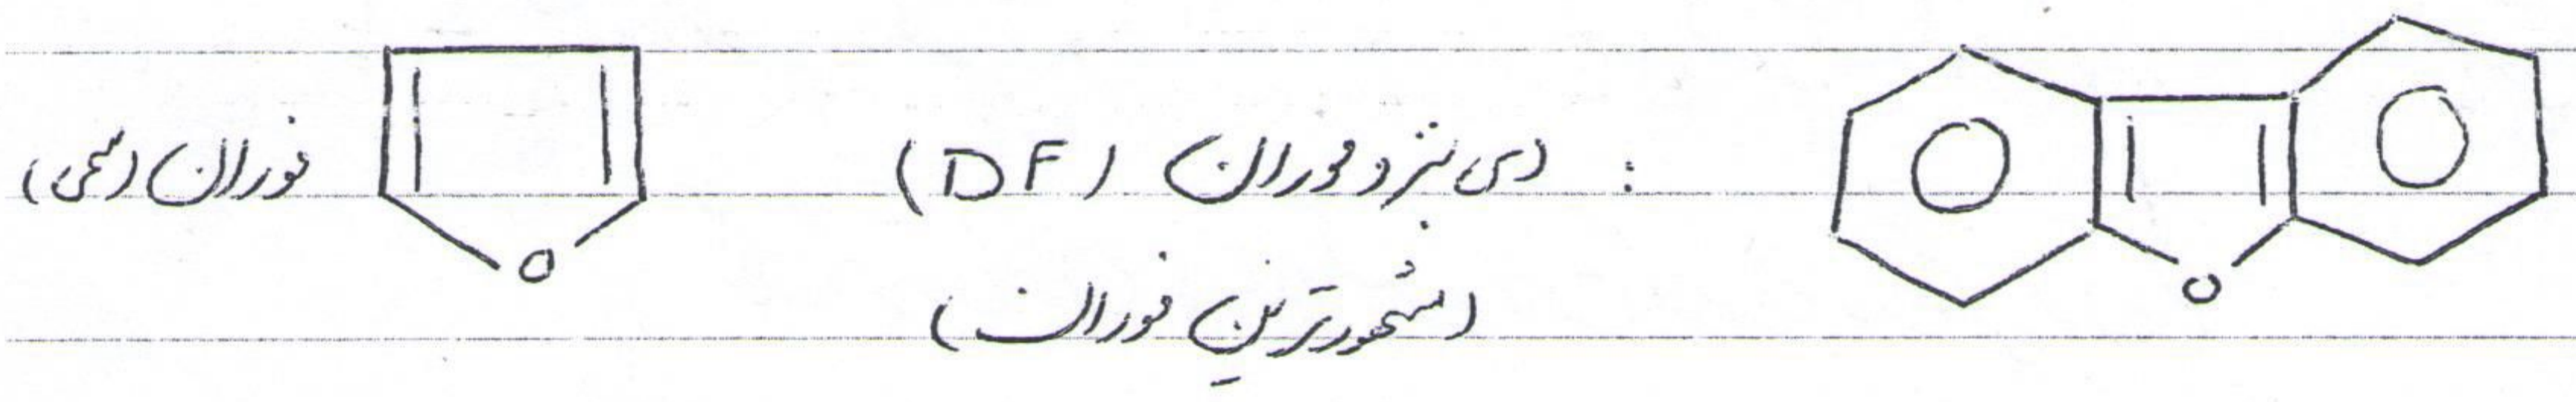 : دی بنزوفوران (DF)
(مشهورترین فوران)
فوران (سمی)
O
O